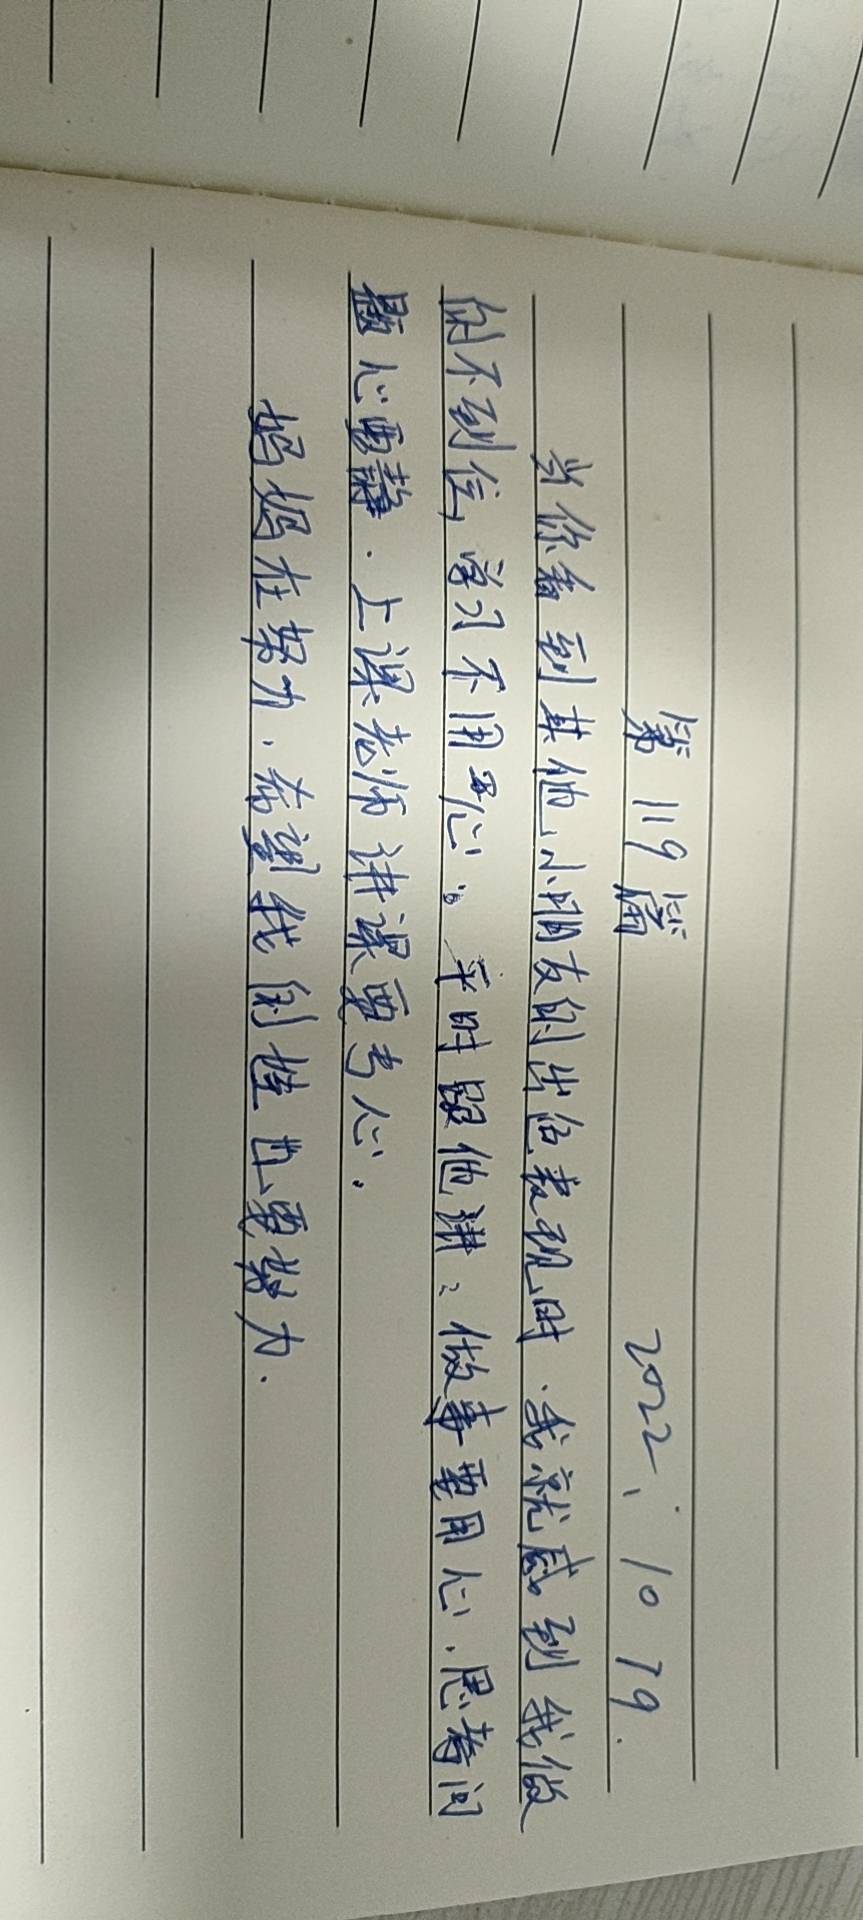 第119篇
2022、10 19.
当你看到其他小朋友的出色表现时.我就感到我做
的不到位,学习不用心。平时跟他讲:做事要用心、思考问
题心要静.上课老师讲课要专心.
妈妈在努力.希望我例性也要努力.